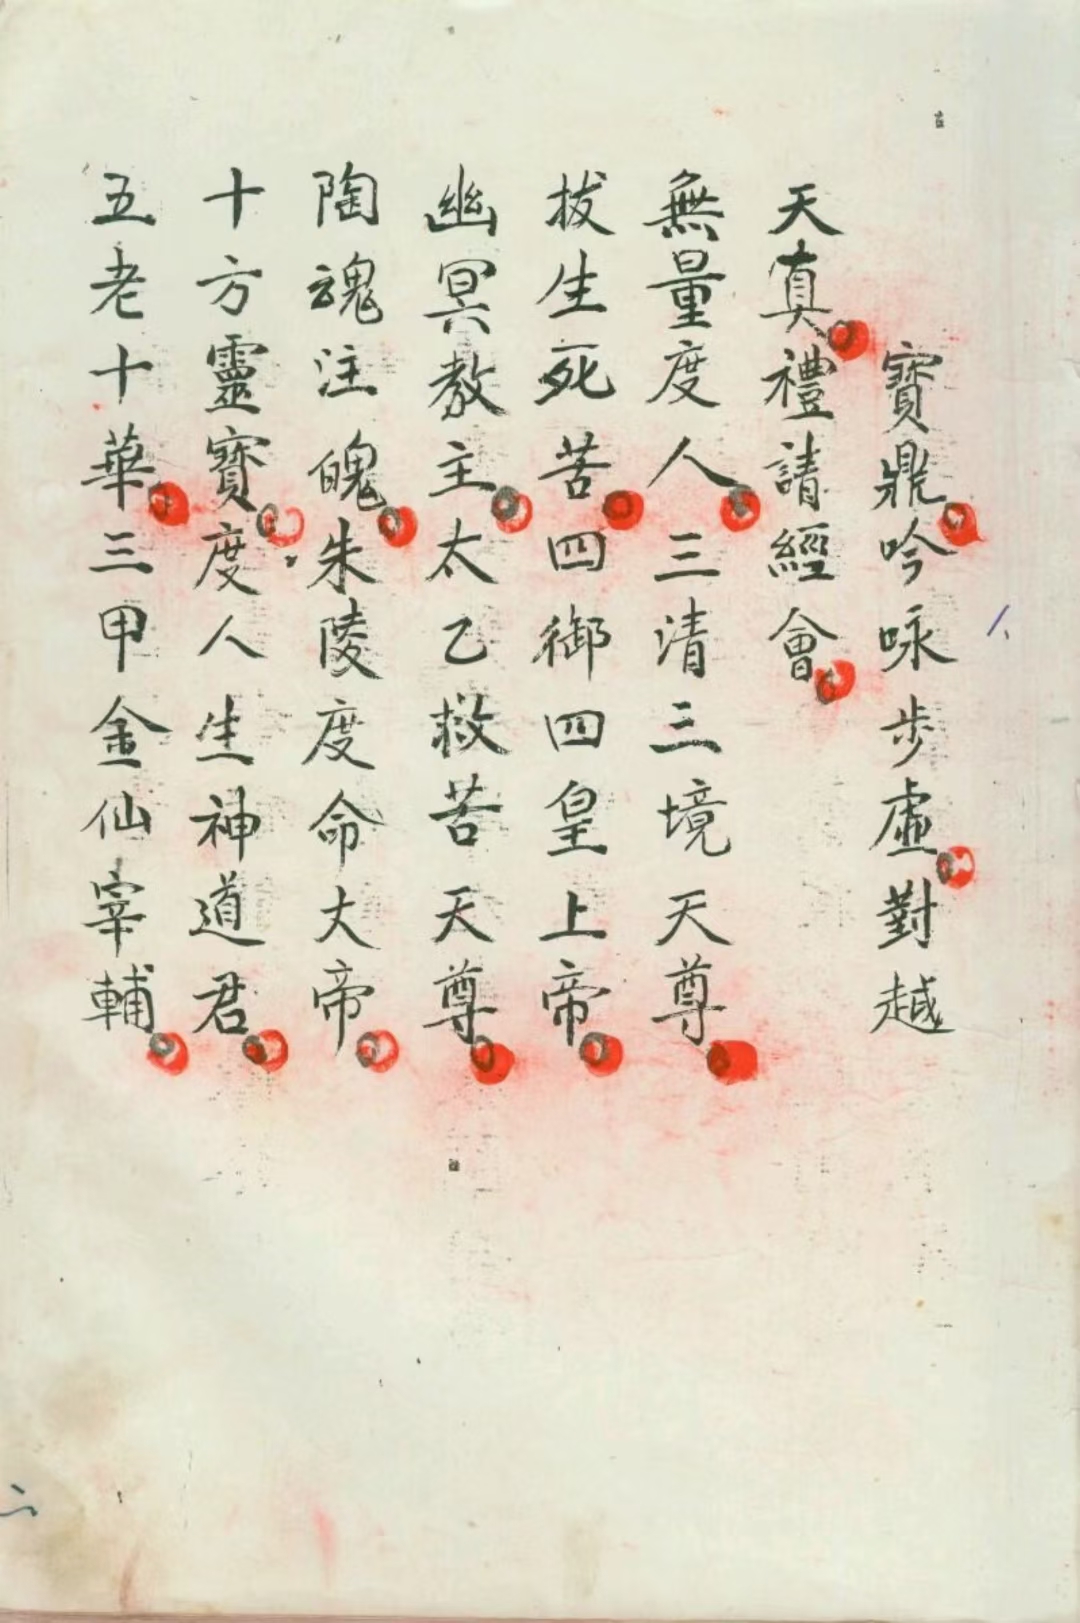 寶鼎吟咏步虛對越
天真禮請經會
無量度人三清三境天尊
拔生死苦四御四皇上帝
幽冥教主太乙救苦天尊
陶魂注魄朱陵度命大帝
十方靈寶度人生神道君
五老十華三甲金仙宰輔